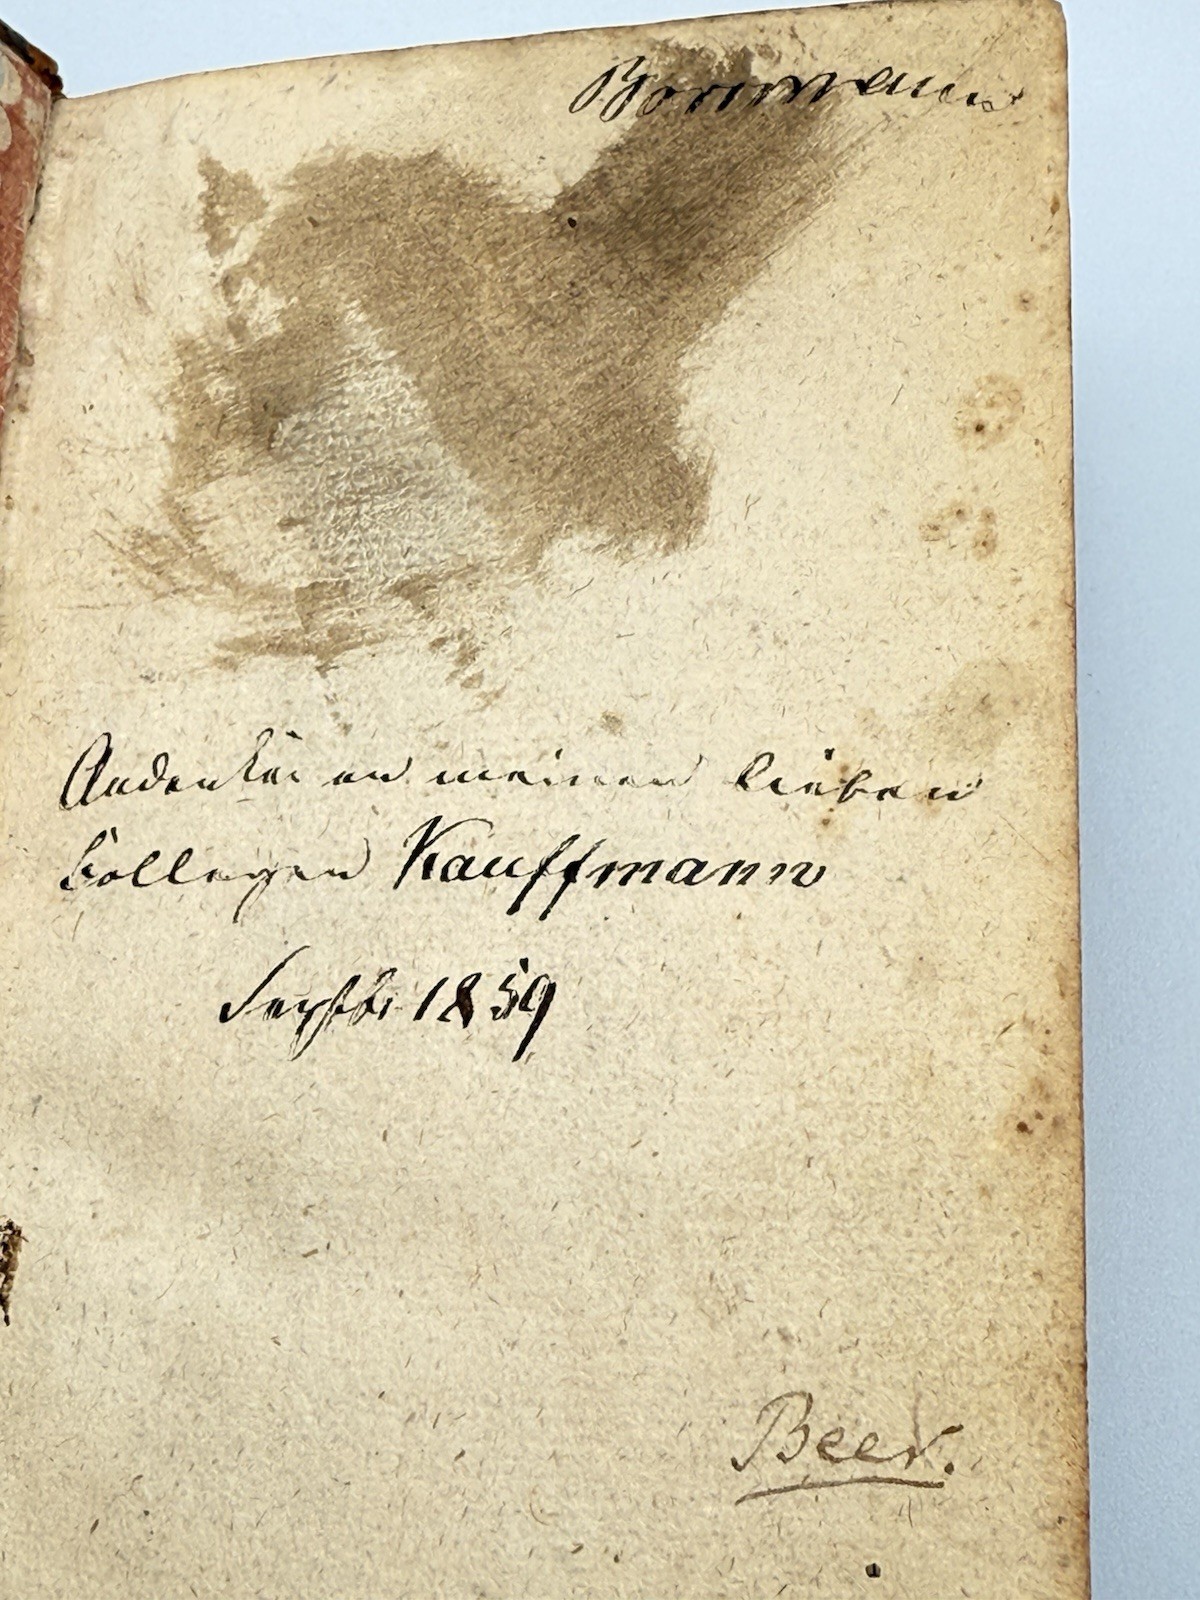 Bornmann
Andenken an meinen lieben
Kollegen Kauffmann
Septbr 1859
Beer.